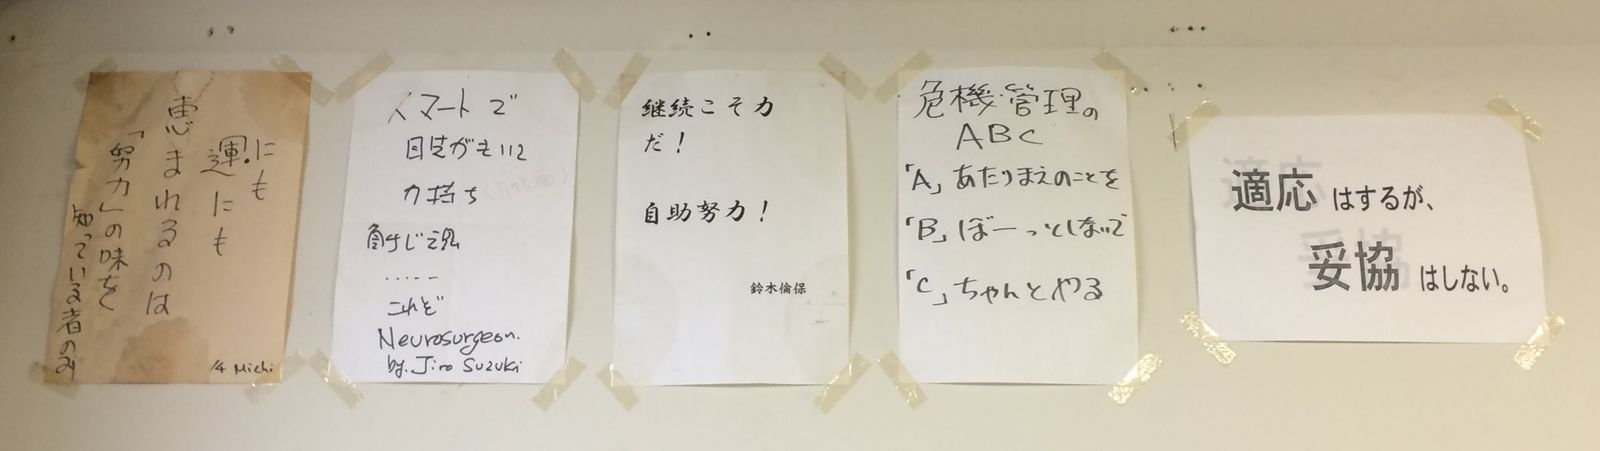 にも
運にも
恵まれるのは
「努力」の味を
知っている者のみ
Michi
スマートで
目先がきいて
力持ち (几帳面)
負けじ魂
.....
これぞ
Neurosurgeon.
by. Jiro Suzuki
継続こそ力
だ！
自助努力！
鈴木倫保
危機管理の
ABC
「A」あたりまえのことを
「B」ぼーっとしないで
「C」ちゃんとやる
適応はするが、
妥協はしない。